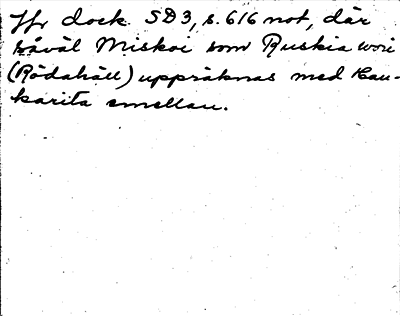 Jfr dock SD3, s. 616 not, där
såväl Miskoi som Ruskia wori
(Rödahäll) uppräknas med Kau-
karita emellan.